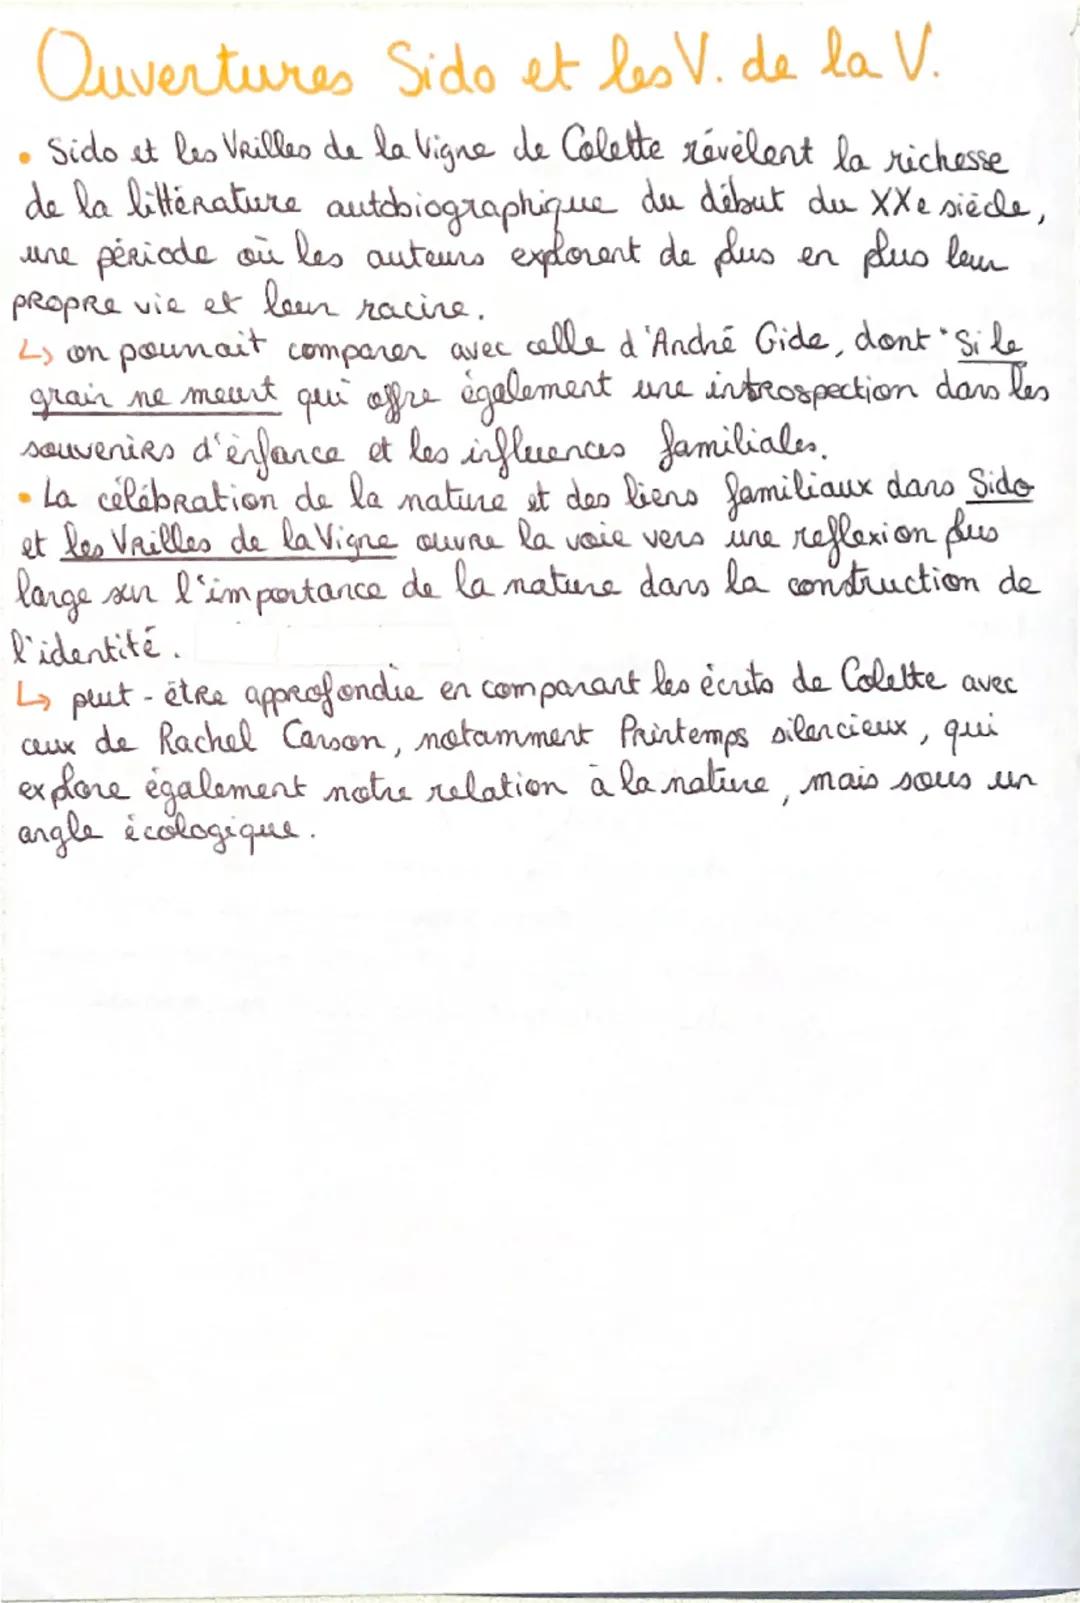 Ouvertures Sido et les V. de la V.
• Sido et les Vrilles de la Vigne de Colette révèlent la richesse
de la littérature autobiographique du début du XXe siècle,
une période où les auteurs explorent de plus en plus leur
propre vie et leur racine.
↳ on pourrait comparer avec celle d'André Gide, dont "Si le
grain ne meurt qui offre également une introspection dans les
souvenirs d'enfance et les influences familiales.
• La célébration de la nature et des liens familiaux dans Sido
et les Vrilles de la Vigne ouvre la voie vers une reflexion plus
large sur l'importance de la nature dans la construction de
l'identité.
↳ peut-être approfondie en comparant les écrits de Colette avec
ceux de Rachel Carson, notamment Printemps silencieux, qui
explore également notre relation à la nature, mais sous un
angle écologique.